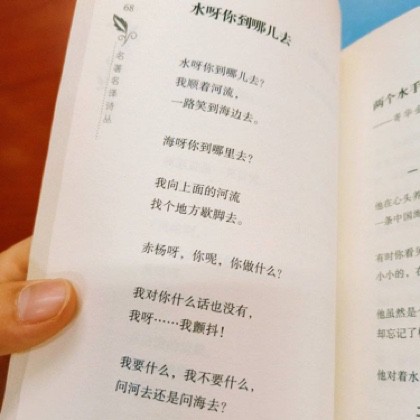 68
名著名译诗丛
水呀你到哪儿去
水呀你到哪儿去？
我顺着河流，
一路笑到海边去。
海呀你到哪里去？
我向上面的河流
找个地方歇脚去。
赤杨呀，你呢，你做什么？
我对你什么话也没有，
我呀……我颤抖！
我要什么，我不要什么，
问河去还是问海去？
两个水手
一
他在心头
一条中国
有时你看
小小的，在
他虽然是
却忘记了
他对着水